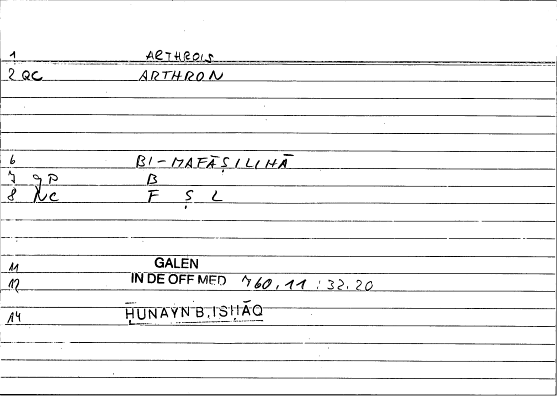 1 ARTHROIS
2 QC ARTHRON
6 BI-MAFĀṢILIHĀ
7 gP B
8 Nc F Ṣ L
11 GALEN
12 IN DE OFF MED 760,11 : 32.20
14 ḤUNAYN B. ISḤĀQ